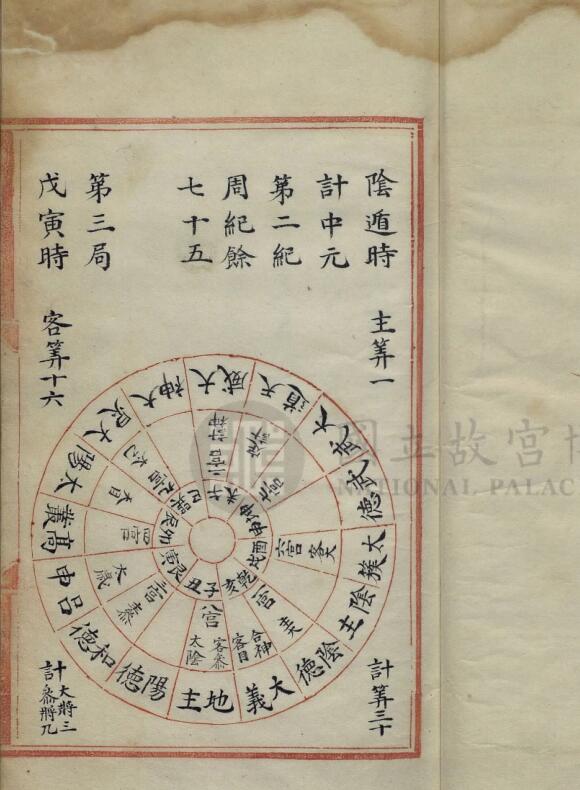 陰遁時
計中元
第二紀
周紀餘
七十五
第三局
戊寅時
主筭一
客筭十六
計筭三十
計大將三
參將九
大神
大威
天道
大武
武德
太簇
陰主
陰德
大義
地主
陽德
和德
呂申
高叢
太陽
大炅
六宮
客大
宮
主大
合神
客目
八宮
客參
太陰
三宮
主參
太歲
四宮
二宮
計神
子
丑
艮
寅
乾
亥
戌
酉
國立故宮博
NATIONAL PALAC